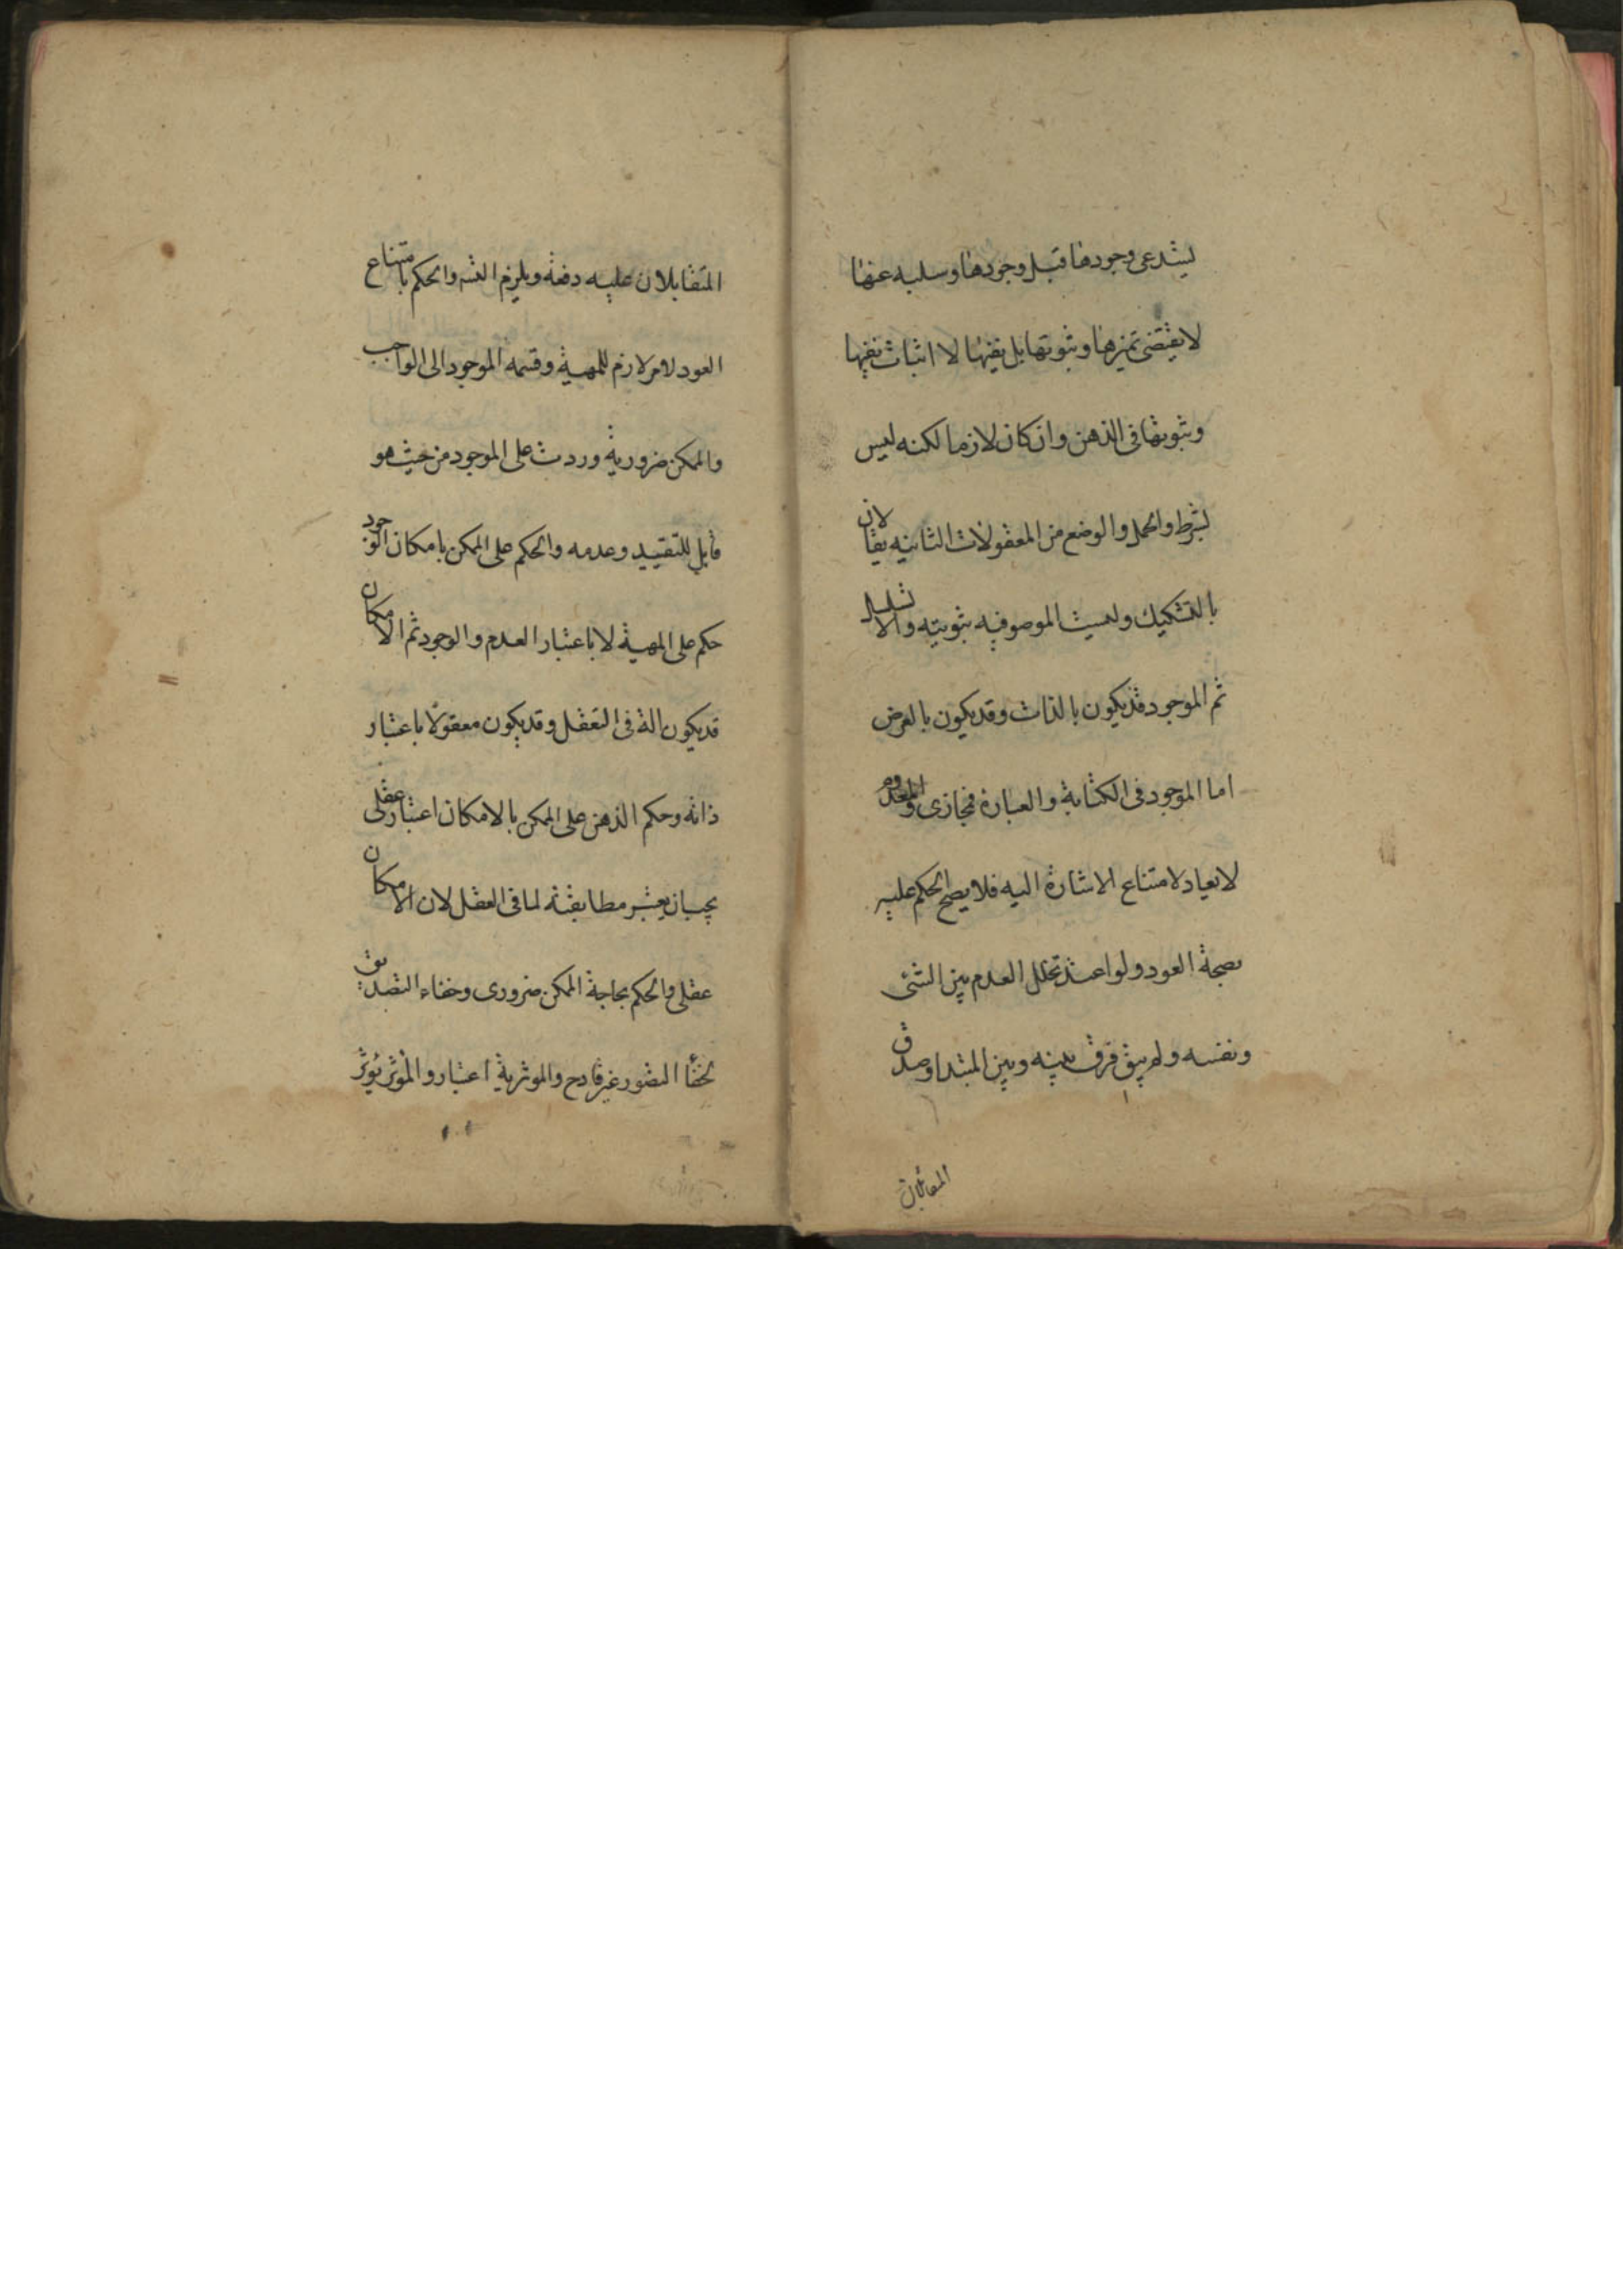 يستدعى وجودها قبل وجودها وسلبه عنها
لا يقتضى تميزها وثبوتها بل نفيها لا اثبات نفيها
وثبوتها فى الذهن وان كان لازما لكنه ليس
بشرط والحمل والوضع من المعقولات الثانيه يقالان
بالتشكيك وليست الموصوفيه ثبوتيه والا تسلسل
ثم الموجود قد يكون بالذات وقد يكون بالعرض
اما الموجود فى الكتابة والعبارة فمجازى والمعدوم
لا يعاد لامتناع الاشارة اليه فلا يصح الحكم عليه
بصحة العود ولو اعيد تخلل العدم بين الشئ
ونفسه ولم يبق فرق بينه وبين المبتدا وصدق
المتقابلان
المتقابلان عليه دفعة ويلزم التس والحكم بامتناع
العود لامر لازم للمهية وقسمة الموجود الى الواجب
والممكن ضرورية وردت على الموجود من حيث هو
قابل للتقييد وعدمه والحكم على الممكن بامكان الوجود
حكم على المهية لا باعتبار العدم والوجود ثم الامكان
قد يكون الة فى التعقل وقد يكون معقولا باعتبار
ذاته وحكم الذهن على الممكن بالامكان اعتبار عقلى
يجب ان يعتبر مطابقته لما فى العقل لان الامكان
عقلى والحكم بحاجة الممكن ضرورى وخفاء التصديق
لخفأ التصور غير قادح والموثرية اعتبار والموثر يوثر